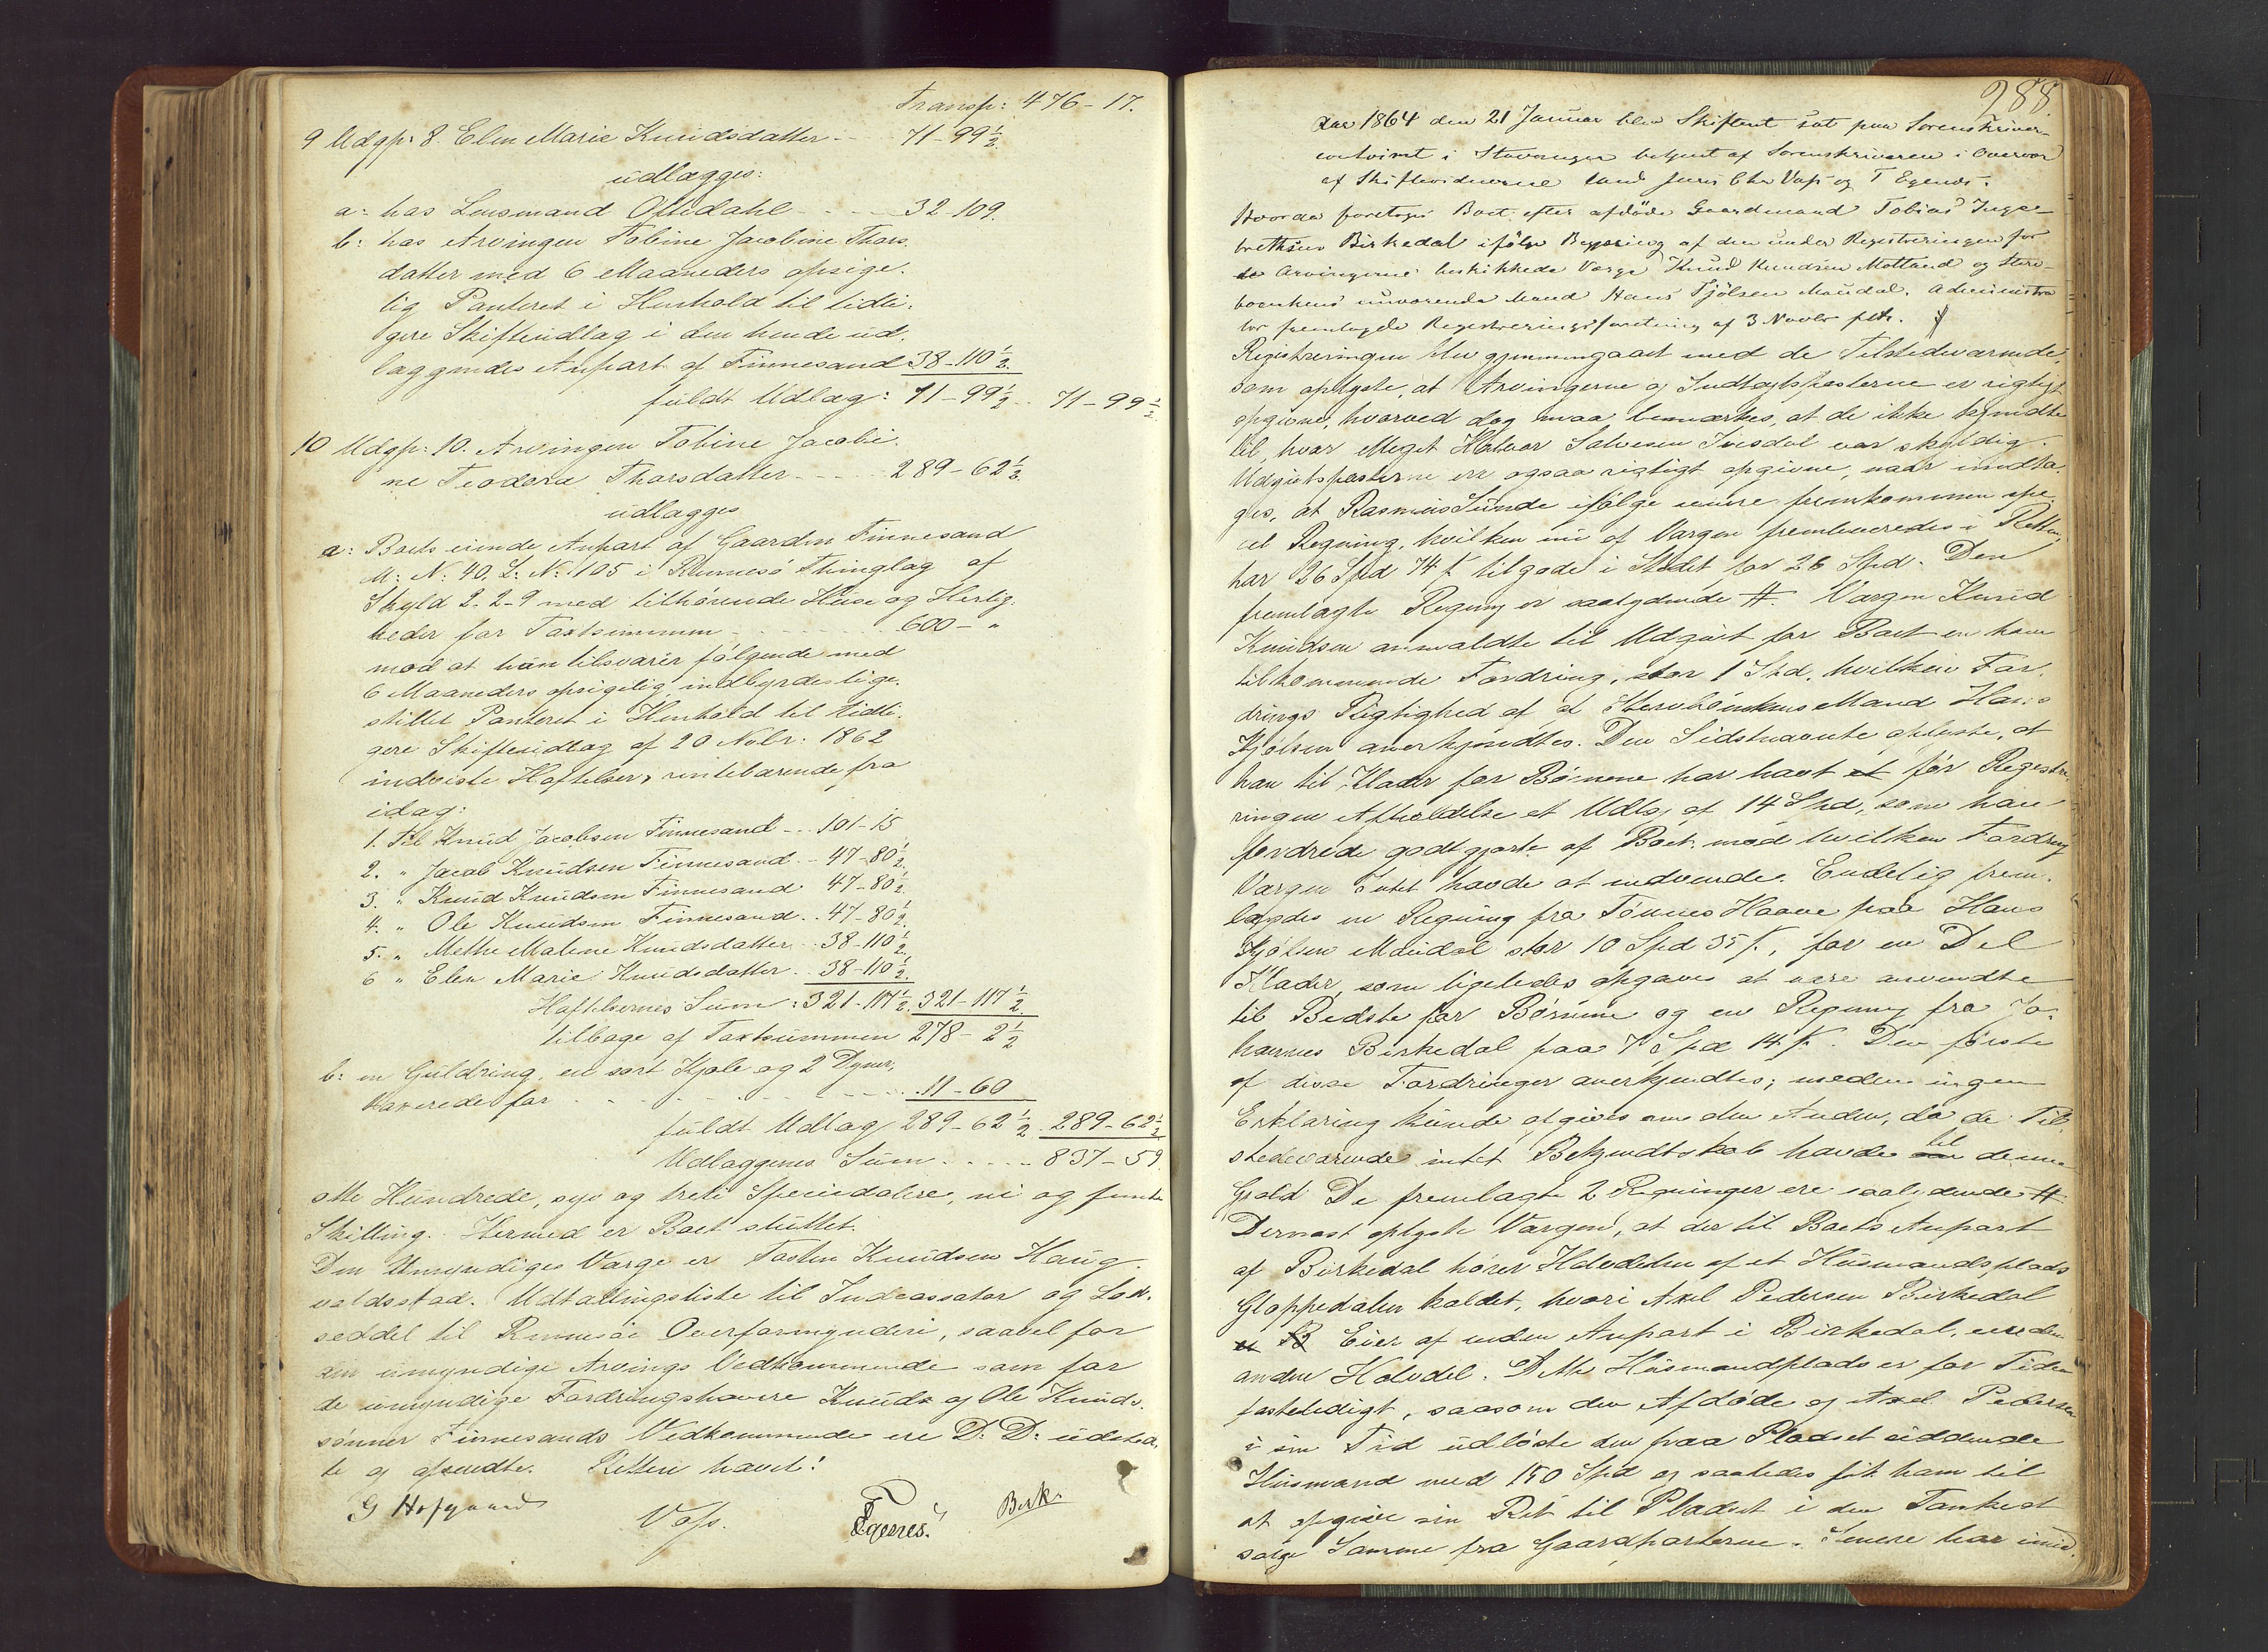 Transp: 476-17.
9 Udgp: 8. Elen Marie Knudsdatter - - 71-99½
udlægges:
a: hos Lensmand Oftedahl - - - 32-109.
b: hos Arvingen Tobine Jacobine Thors-
datter med 6 Maaneders opsige-
lig Panteret i Henhold til tidli-
gere Skifteudlæg i den hende ud-
læggendes Anpart af Finnesand 38-110½
fuldt Udlæg: 71-99½ .. 71-99½
10 Udgp: 10. Arvingen Tobine Jacobi-
ne Teodora Thorsdatter - - - - 289-62½
udlægges
a: Boets eiende Anpart af Gaarden Finnesand
M: N: 40. L: N: 105 i Rennesø Thinglag af
Skyld 2-2-9 med tilhørende Huse og Herlig-
heder for Taxtsummen - - - - - 600- "
mod at hun tilsvarer følgende med
6 Maaneders opsigelig indbyrdes lige-
stillet Panteret i Henhold til tidli-
gere Skifteudlæg af 20 Novbr: 1862
indviste Hæftelser, rentebærende fra
idag:
1. Til Knud Jacobsen Finnesand - - 101-15
2. " Jacob Knudsen Finnesand - - 47-80½
3. " Knud Knudsen Finnesand 47-80½
4. " Ole Knudsen Finnesand - - 47-80½
5. " Methe Malene Knudsdatter - - 38-110½
6 " Elen Marie Knudsdatter - - 38-110½
Hæftelsernes Sum: 321-117½ 321-117½
tilbage af Taxtsummen 278-2½
b: en Guldring, en sort Kjole og 2 Dyner,
taxerede for - - - - - - - - 11-60
fuldt Udlæg 289-62½ 289-62½
Udlæggenes Sum - - - - - 837-59
otte Hundrede, syv og treti Speciedalere, ni og femti
Skilling. Hermed er Boet sluttet.
Den Umyndiges Værge er Tosten Knudsen Haug-
valdstad. Udtallingsliste til Indcassator og Lod-
seddel til Rennesøe Overformynderi, saavel for
den umyndige Arvings Vedkommende som for
de umyndige Fordringshavere Knud og Ole Knud-
sønner Finnesands Vedkommende ere D: D: udsted-
te og afsendte. Retten hævet!
G Hofgaard Voss. Egenes. Berk.
288
Aar 1864 den 21 Januar blev Skifteret sat paa Sorenskriver-
contoiret i Stavanger betjent af Sorenskriveren i Overvær
af Skiftevidnerne Cand juris Voss og T Egenes.
Hvorda foretoges Boet efter afdøde Gaardmand Tobias Inge-
brethsen Birkedal ifølge Begjæring af den under Registreringen for
Arvingerne beskikkede Værge Knud Knudsen Motland og Sterv-
boenkens nuværende Mand Hans Kjølsen Maudal. Administra
tor fremlagde Registreringsforretning af 3 Novbr
Registreringen blev gjennemgaaet med de Tilstedeværende
som oplyste, at Arvingerne og Indtægtsposterne er rigtigt
opgivne, hvorved dog maa bemærkes, at de ikke kjendte
til, hvor Meget Halvor Salvesen var skyldig.
Udgivtsposterne ere ogsaa rigtigt opgivne, naar undta-
ges, at Rasmus Sunde ifølge senere fremkommen spe-
ciel Regning, hvilken nu af Værgen fremleveredes i Retten,
har 26 Spd 74 ß tilgode i Stedet for 26 Spd. Den
fremlagte Regning er saalydende #. Værgen Knud
Knudsen anmeldte til Udgivt for Boet en ham
tilkommende Fordring, stor 1 Spd, hvilken For-
drings Rigtighed af Stervboenkens Mand Hans
Kjølsen anerkjendtes. Den Sidstnævnte oplyste, at
han til Klæder for Børnene har havt før Registre-
ringens Afholdelse et Udlæg af 14 Spd, som han
fordrede godtgjort af Boet mod hvilken Fordring
Værgen Intet havde at indvende. Endelig frem-
lagdes en Regning fra Tønnes Haave paa Hans
Kjølsen Maudal stor 10 Spd 35 ß, for en Del
Klæder, som ligeledes opgaves at være anvendte
til Bedste for Børnene og en Regning fra Jo-
hannes Birkedal paa 7 Spd 14 ß. Den første
af disse Fordringer anerkjendtes; medens ingen
Erklæring kunde afgives om den Anden, da de Til-
stedeværende intet Bekjendtskab havde til denne
Gjæld De fremlagte 2 Regninger ere saalydende #
Dernæst oplyste Værgen, at der til Boets Anpart
af Birkedal hører Halvdelen af et Husmandsplads
Gloppedalen kaldet, hvori Axel Pedersen Birkedal
Eier af anden Anpart i Birkedal, eier den
anden Halvdel. Dette Husmandsplads er for Tiden
fæsteledigt, saasom den Afdøde og Axel Pedersen
i sin Tid udløste den paa Pladset siddende
Husmand med 150 Spd og saaledes fik ham til
at opgive sin Ret til Pladset i den Tanke at
sælge Samme fra Gaardparterne. Senere har imid-